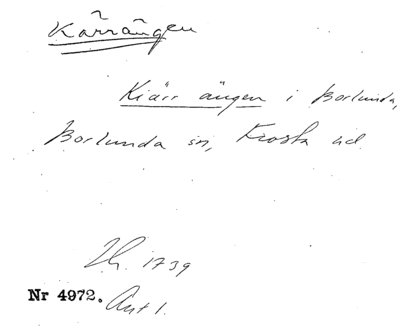 Kärrängen
Kiärr ängen i Borlunda,
Borlunda sn, Frosta hd.
Lh. 1739
Nr 4972. Akt 1.